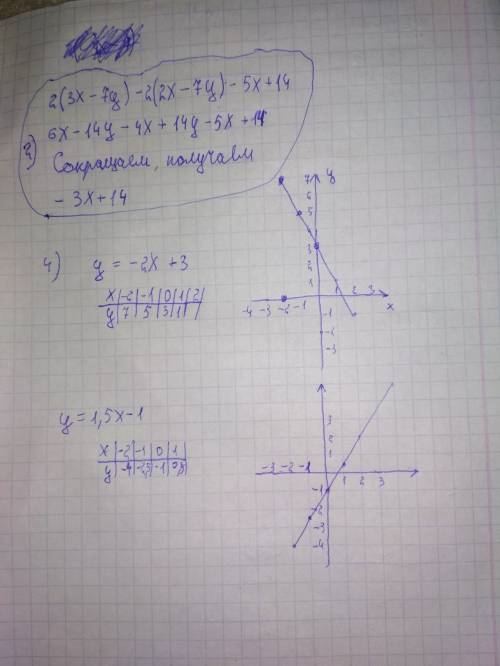 3)
2(3x-7y)-2(2x-7y)-5x+14
6x-14y-4x+14y-5x+14
Сокращаем, получаем
-3x+14
4) y = -2x +3
x|-2|-1|0|1|2|
y|7|5|3|1|
y
7
6
5
3
2
1
-4 -3 -2 -1 1 2 3
x
-1
-2
-3
y=1,5x-1
x|-2|-1|0|1
y|-4|-2,5|-1|0,5
3
2
1
-3 -2 -1 1 2 3
-1
-2
-3
-4